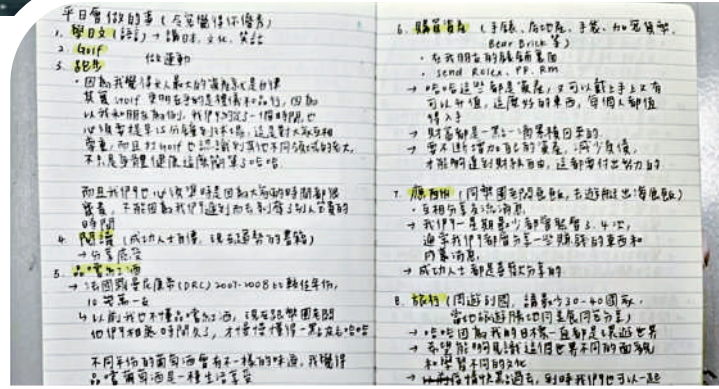 平日會做的事（令客覺得你優秀）
1. 學日文（語言）→ 講日本, 文化, 笑話
2. Golf
做運動
3. 跑步
・因為我覺得女人最大的資產就是自律
其實 Golf 更明白的是禮儀和品行, 因為
以我和朋友為例, 我們約了一個時間, 也
必須要提早15分鐘到球場, 這是對大家互相
尊重, 而且打 Golf 也認識到其他不同領域的老大,
不只是身體健康這麼簡單了哈哈
而且我們也必須準時是因為大家的時間都很
寶貴, 不能因為我們遲到而去剝奪了別人寶貴的
時間
4. 閱讀（成功人士自傳, 現在趨勢的書籍）
→ 分享感受
5. 品嚐紅酒
→ 法國羅曼尼康帝（DRC）2007-2008 的 年份,
10 幾萬一支
↳ 以前我也不懂品嚐紅酒, 現在跟幣圈老闆
他們相處時間久了, 才慢慢懂得一點點哈哈
不同年份的葡萄酒會有不一樣的味道, 我覺得
品嚐葡萄酒是一種生活享受
6. 購買資產（手錶、房地產、手袋、加密貨幣、
Bear Brick 等）
・在我朋友的錶舖裏面
・send Rolex, PP, RM
→ 哈哈這些都是資產, 又可以戴上手上又有
可以升值, 這麼好的東西, 每個人都值
得入手
→ 財富都是一點一滴累積回來的
→ 要不斷增加自己的資產, 減少負債,
才能夠達到財務自由, 這都要付出努力的
7. 應酬（同幣圈老闆食飯, 去遊艇出海食飯）
・互相分享在 消息
→ 我們一星期最少都會聚會 3, 4次,
通常我們都會分享一些 的東西和
內幕消息,
→ 成功人士都是喜歡分享的
8. 旅行（周遊列國, 講最少30-40國家,
當地旅遊勝地同美食同客分享）
→ 哈哈因為我的目標一直都是環遊世界
→ 希望能夠見識這個世界不同的面貌
和學習不同的文化
→ 疫情快點過去, 到時我們也可以一起